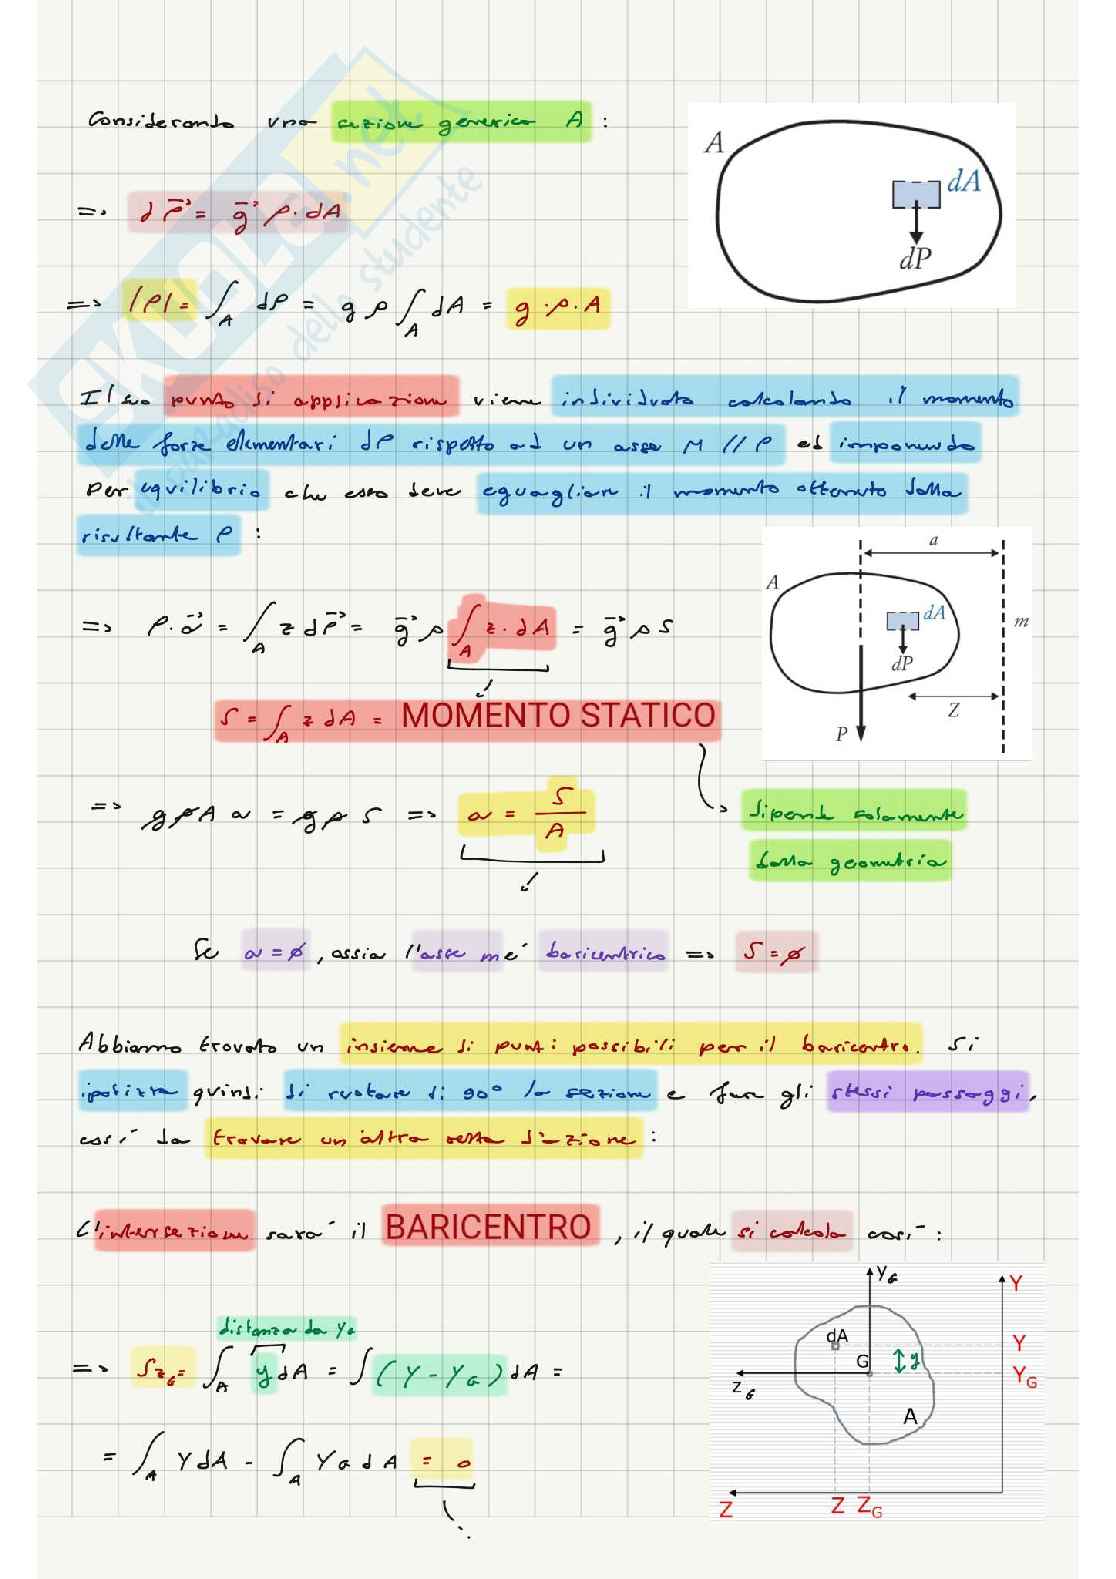 Considerando una sezione generica A :
A
dA
dP
=> dP = g ρ · dA
=> |P| = ∫A dP = g ρ ∫A dA = g · ρ · A
Il suo punto di applicazione viene individuato calcolando il momento
delle forze elementari dP rispetto ad un asse M // P ed imponendo
per equilibrio che esso deve eguagliare il momento ottenuto dalla
risultante P :
a
A
dA
m
dP
Z
P
=> P · a = ∫A z dP = g ρ ∫A z · dA = g ρ S
S = ∫A z dA = MOMENTO STATICO
=> gρA a = gρ S => a = S/A
dipende solamente
dalla geometria
Se a = ø, ossia l'asse m è baricentrico => S = ø
Abbiamo trovato un insieme di punti possibili per il baricentro. Si
ipotizza quindi di ruotare di 90° la sezione e fare gli stessi passaggi,
così da trovare un'altra retta d'azione :
L'intersezione sarà il BARICENTRO, il quale si calcola così :
distanza da YG
=> SzG = ∫A y dA = ∫ (Y - YG) dA =
= ∫A Y dA - ∫A YG dA = 0
yG
Y
dA
Y
G
y
YG
zG
A
Z
Z
ZG